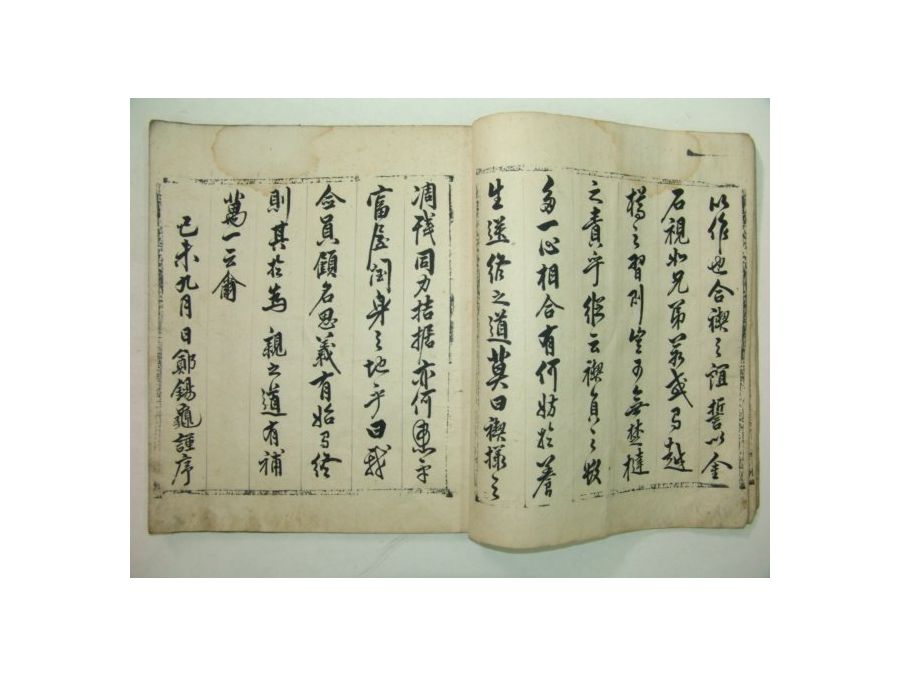 以作也合禊之誼誓以金
石視如兄弟若或爲越
之習則豈可無楚撻
之責乎縱云禊員之數
多一心相合有何妨於養
生送終之道莫曰禊樣之
凋殘同力拮据亦何患乎
富屋潤身之地乎曰我
僉員顧名思義有始爲終
則其於爲親之道有補
萬一云爾
己未九月日鄭錫龜謹序